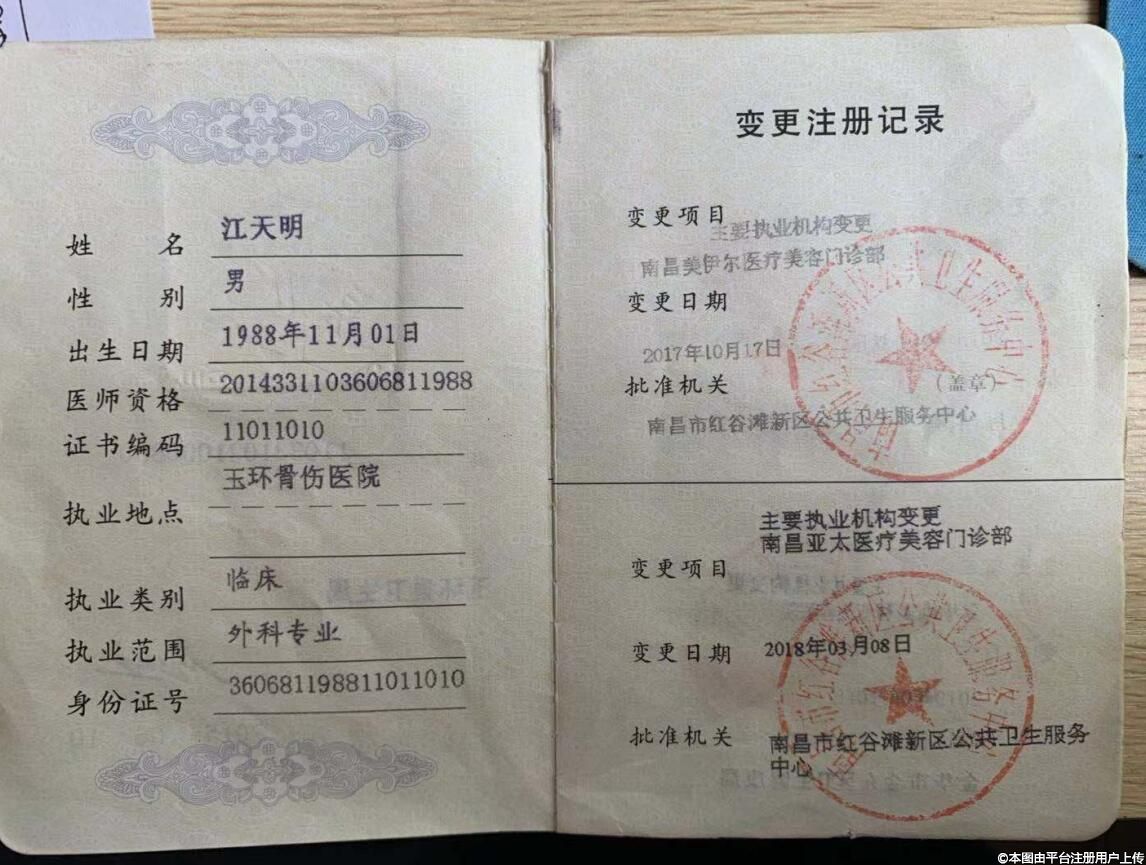 姓名 江天明
性别 男
出生日期 1988年11月01日
医师资格 2014331103606811988
证书编码 11011010
执业地点 玉环骨伤医院
执业类别 临床
执业范围 外科专业
身份证号 360681198811011010
变更注册记录
变更项目 主要执业机构变更
南昌美伊尔医疗美容门诊部
变更日期
2017年10月17日
批准机关 (盖章)
南昌市红谷滩新区公共卫生服务中心
南昌市红谷滩新区公共卫生服务中心
主要执业机构变更
南昌亚太医疗美容门诊部
变更项目
变更日期 2018年03月08日
批准机关 南昌市红谷滩新区公共卫生服务
中心
南昌市红谷滩新区公共卫生服务中心
©本图由平台注册用户上传